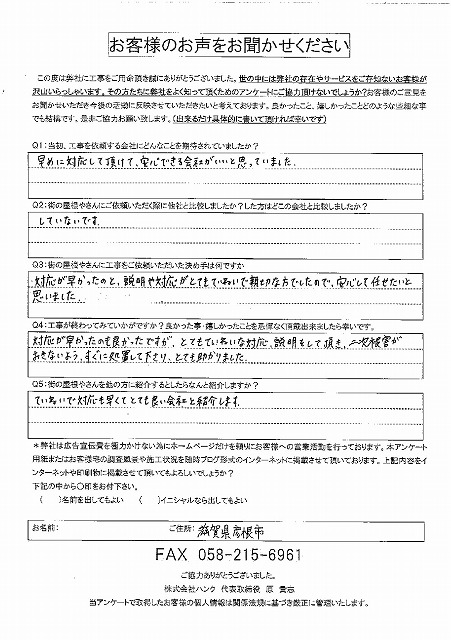 お客様のお声をお聞かせください
この度は弊社に工事をご用命頂き誠にありがとうございました。世の中には弊社の存在やサービスをご存知ないお客様が
沢山いらっしゃいます。その方たちに弊社をよく知って頂くためのアンケートにご協力頂けないでしょうか?お客様のご意見を
お聞かせいただき今後の運営に反映させていただきたいと考えております。良かったこと、嬉しかったことどのような些細な事
でも結構です、是非ご協力お願い致します。(出来るだけ具体的に書いて頂ければ幸いです)
Q1:当初、工事を依頼する会社にどんなことを期待されていましたか?
早めに対応して頂けて、安心できる会社がいいと思っていました。
Q2:街の屋根やさんにご依頼いただく際に他社と比較しましたか?した方はどこの会社と比較しましたか?
していないです。
Q3:街の屋根やさんに工事をご依頼いただいた決め手は何ですか
対応が早かったのと、説明や対応がとてもていねいで親切な方でしたので、安心して任せたいと
思いました。
Q4:工事が終わってみていかがですか?良かった事・嬉しかったことを忌憚なく頂戴出来ましたら幸いです。
対応が早かったのも良かったですが、とてもていねいな対応、説明をして頂き、二次被害が
おきないよう、すぐに処置して下さり、とても助かりました。
Q5:街の屋根やさんを他の方に紹介するとしたらなんと紹介しますか?
ていねいで対応も早くてとても良い会社と紹介します。
*弊社は広告宣伝費を極力かけない為にホームページだけを頼りにお客様への営業活動を行っております。本アンケート
用紙またはお客様宅の調査風景や施工状況を随時ブログ形式のインターネットに掲載させて頂いております。上記内容をイ
ンターネットや印刷物に掲載させて頂いてもよろしいでしょうか?
下記の中から○印をお付下さい。
( )名前を出してもよい ( )イニシャルなら出してもよい
お名前: ご住所: 滋賀県彦根市
FAX 058-215-6961
ご協力ありがとうございました。
株式会社ハンク 代表取締役 原 貴志
当アンケートで取得したお客様の個人情報は関係法規に基づき厳正に管理いたします。